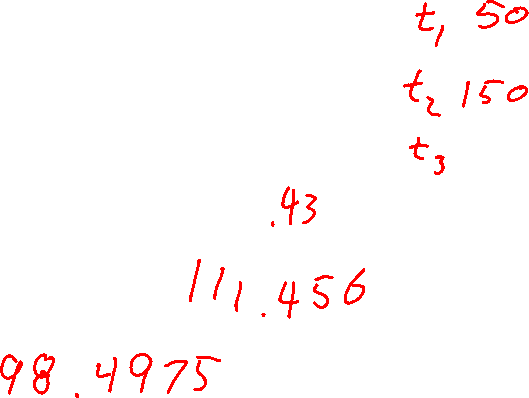 t₁ 50
t₂ 150
t₃
.43
111.456
98.4975